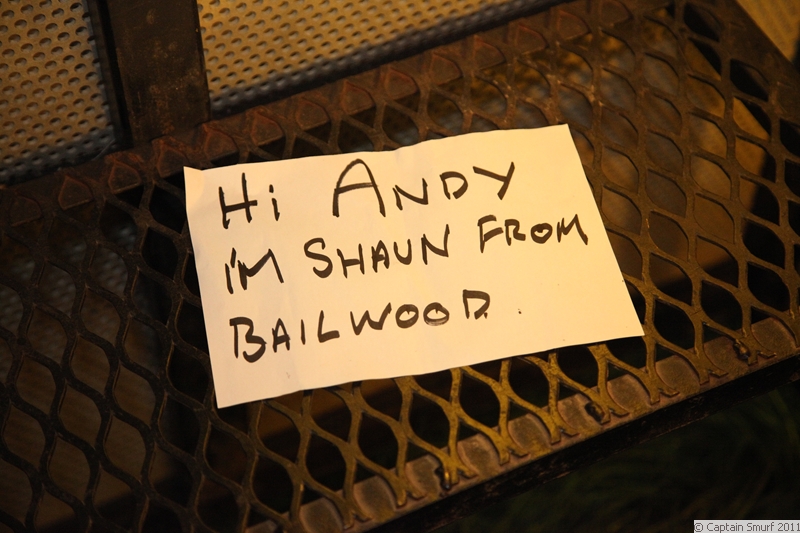 Hi ANDY
I'M SHAUN FROM
BAILWOOD.
© Captain Smurf 2011